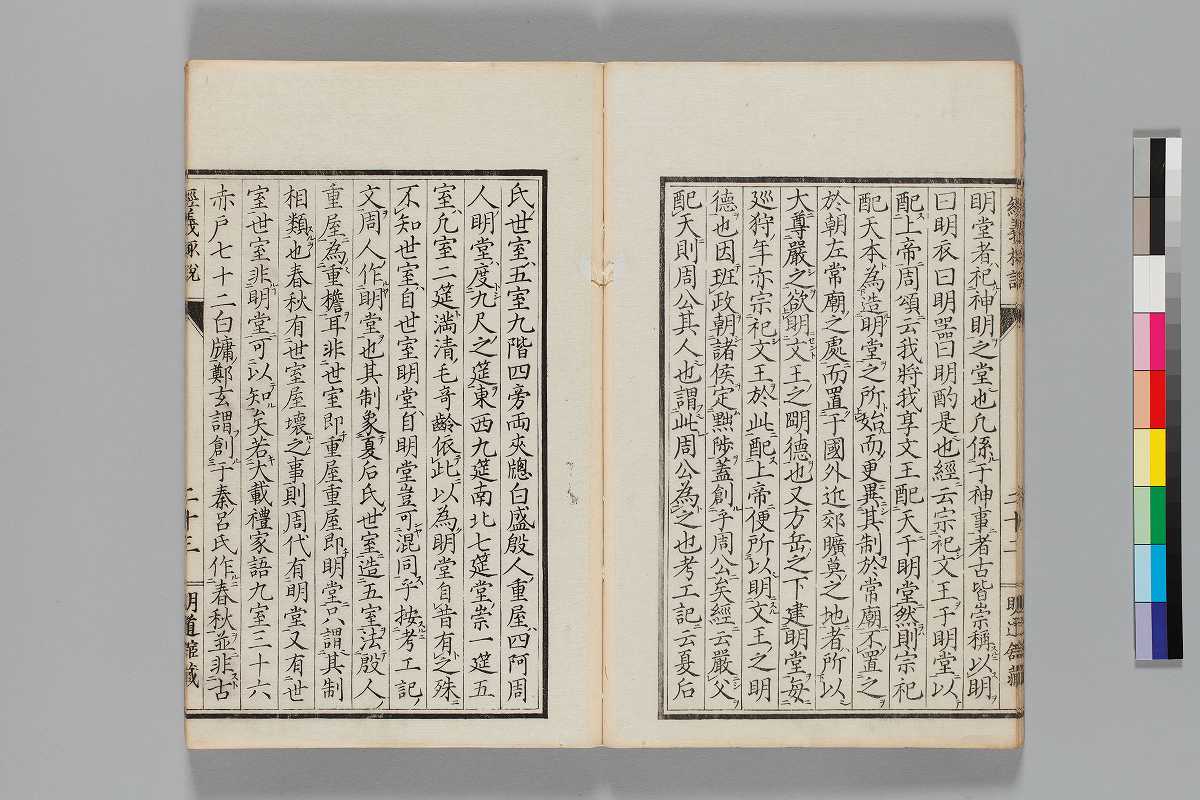 明堂者祀神明之堂也凡係于神事者古皆崇稱以明
曰明衣曰明器曰明酌是也經云宗祀文王于明堂以
配上帝周頌云我將我享文王配天于明堂然則宗祀
配天本為造明堂之所始而更異其制於常廟不置之
於朝左常廟之處而置于國外近郊曠莫之地者所以
大尊嚴之欲明文王之明德也又方岳之下建明堂每
巡狩年亦宗祀文王於此配上帝便所以明文王之明
德也因班政朝諸侯定黜陟蓋創乎周公矣經云嚴父
配天則周公其人也謂此周公為之也考工記云夏后
二十二
氏世室五室九階四旁兩夾牕白盛殷人重屋四阿周
人明堂度九尺之筵東西九筵南北七筵堂崇一筵五
室凡室二筵滿清毛奇齡依此以為明堂自昔有之殊
不知世室自世室明堂自明堂豈可混同乎按考工記
文周人作明堂也其制象夏后氏世室造五室法殷人
重屋為重檐耳非世室即重屋重屋即明堂只謂其制
相類也春秋有世室屋壞之事則周代有明堂又有世
室世室非明堂可以知矣若大載禮家語九室三十六
赤戶七十二白牖鄭玄謂創于秦呂氏作春秋並非古
二十三
明道館藏